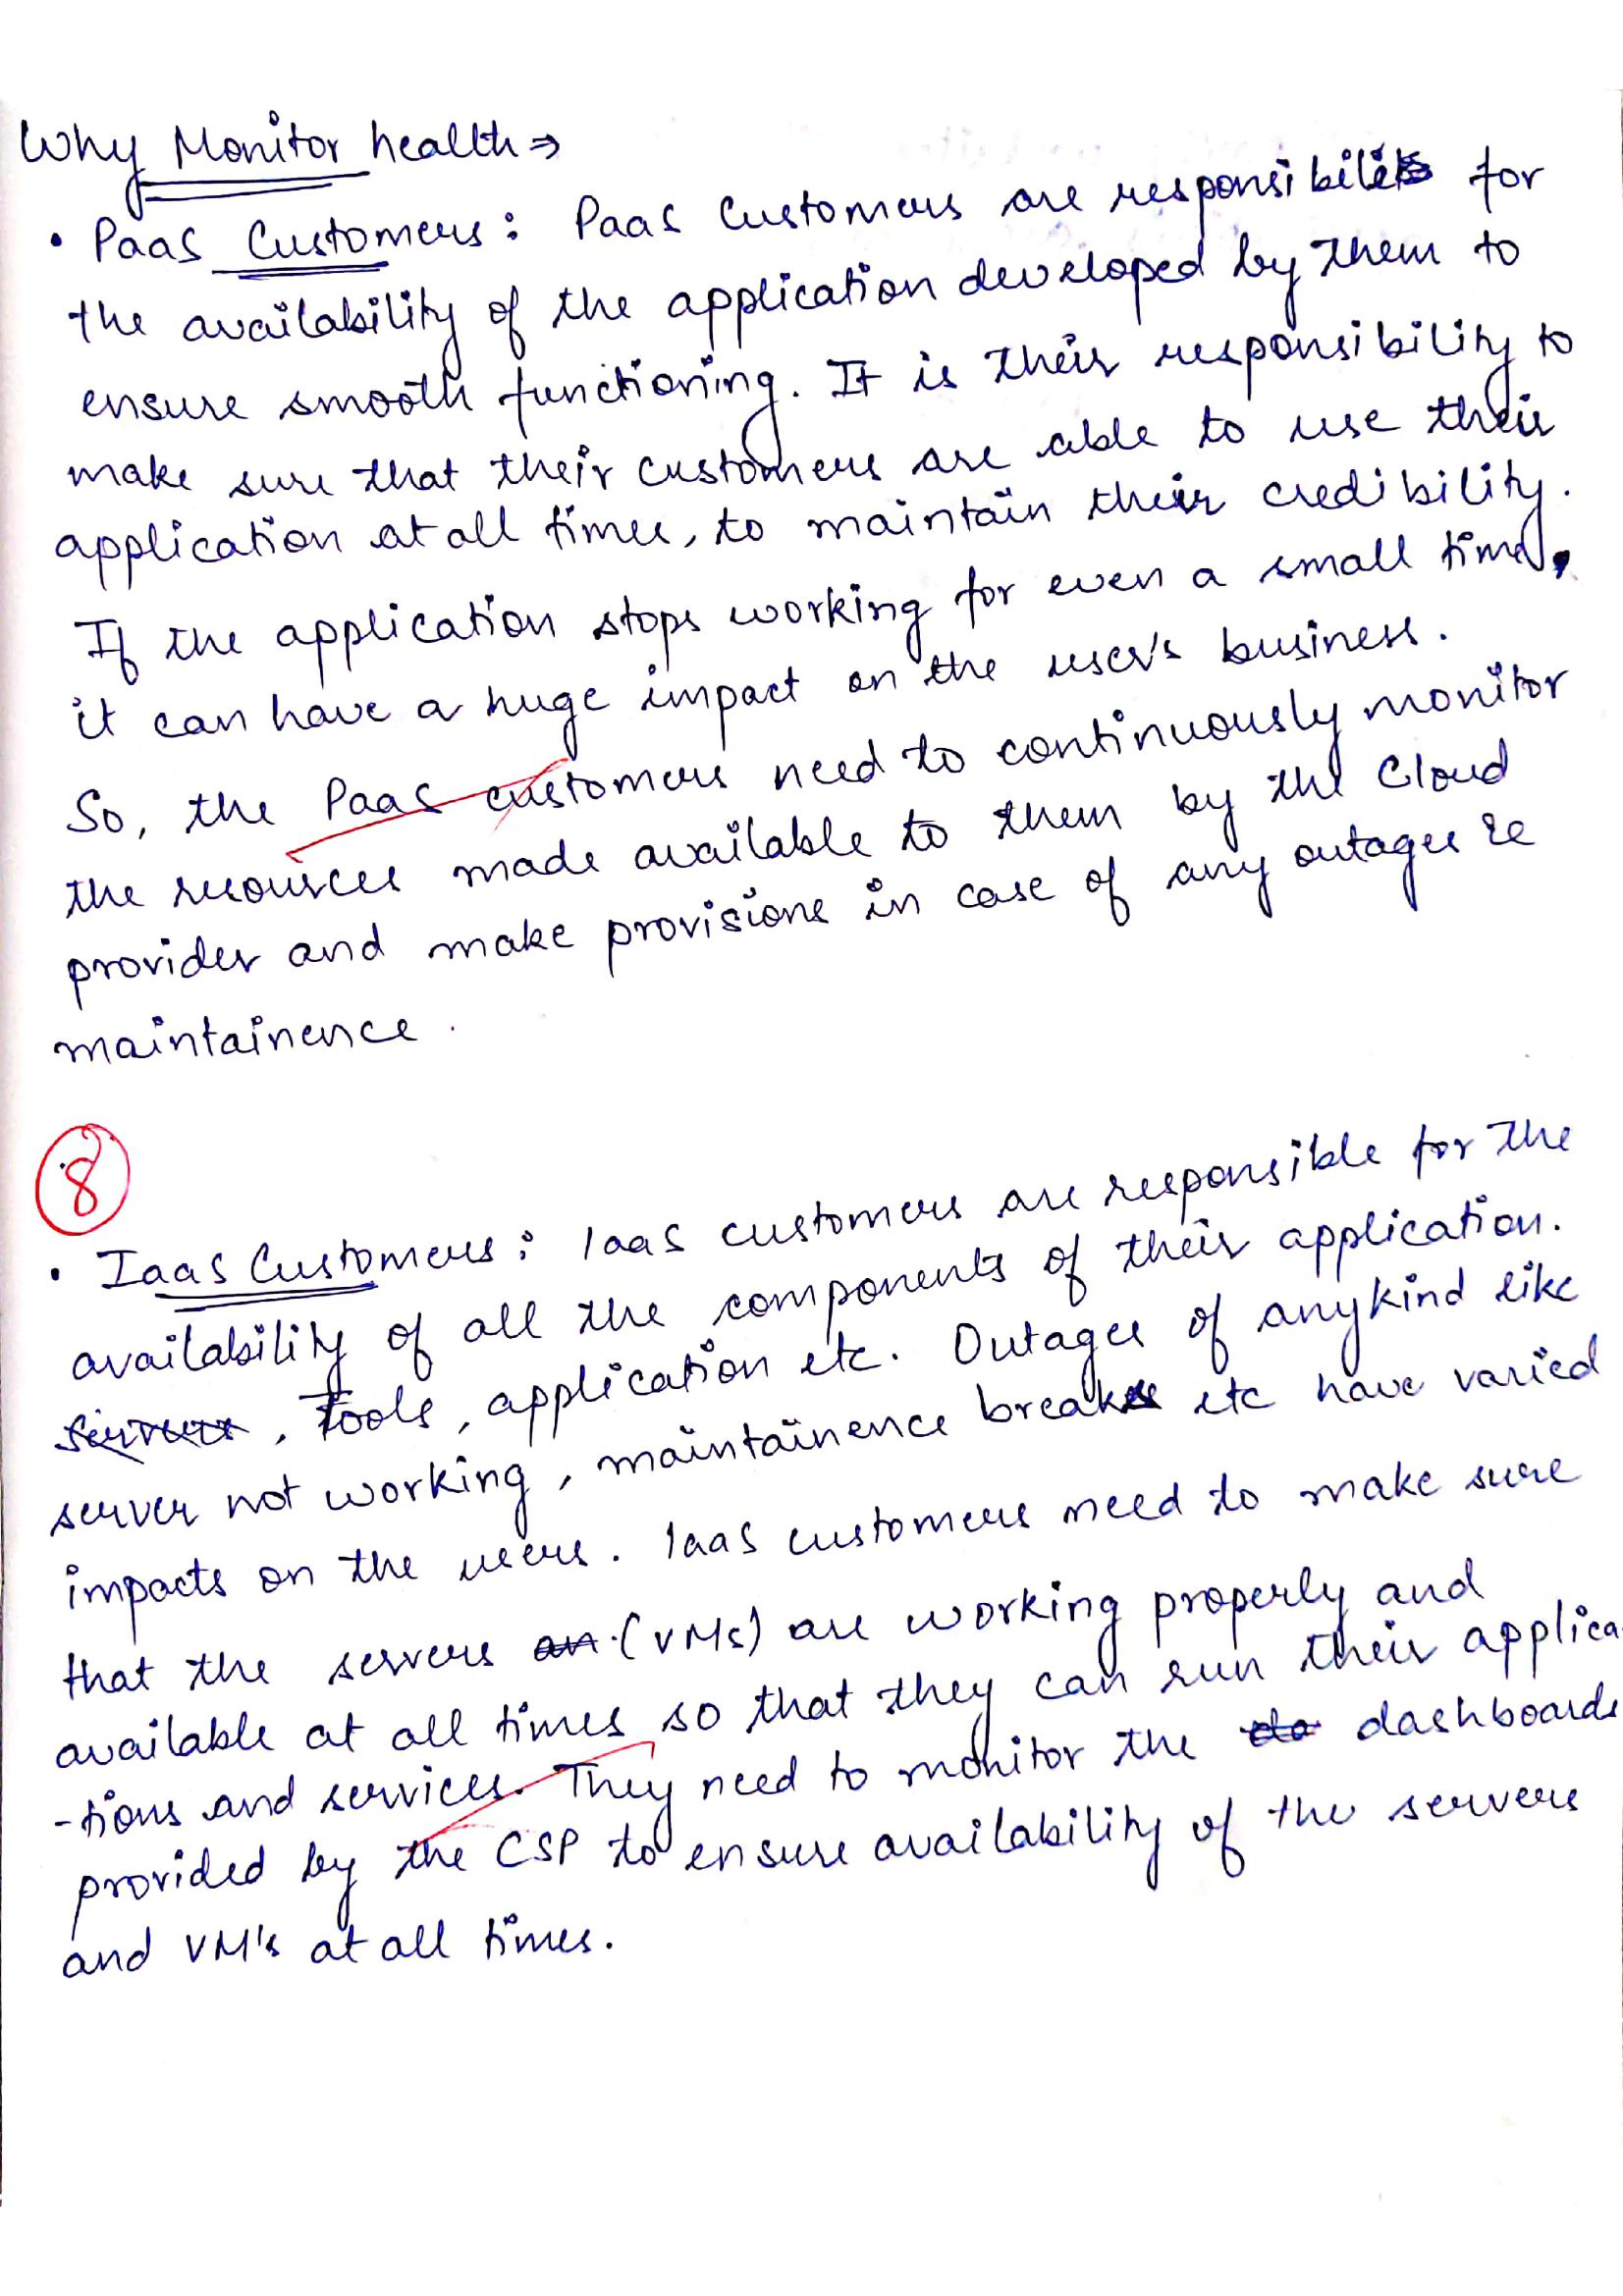 Why Monitor health ⇒
• PaaS Customers: PaaS Customers are responsible for
the availability of the application developed by them to
ensure smooth functioning. It is their responsibility to
make sure that their customers are able to use their
application at all times, to maintain their credibility.
If the application stops working for even a small time,
it can have a huge impact on the user's business.
So, the PaaS customers need to continuously monitor
the resources made available to them by the Cloud
provider and make provisions in case of any outages &
maintainence.
8
• IaaS Customers: IaaS customers are responsible for the
availability of all the components of their application.
servers, Tools, application etc. Outages of anykind like
server not working, maintainence breaks etc have varied
impacts on the users. IaaS customers need to make sure
that the servers an (VMs) are working properly and
available at all times so that they can run their applica
-tions and services. They need to monitor the da dashboards
provided by the CSP to ensure availability of the servers
and VM's at all times.